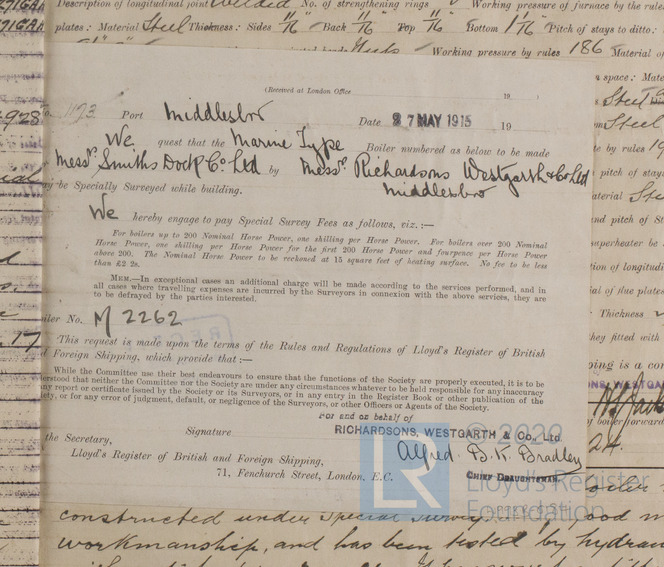 Description of longitudinal joint welded No. of strengthening rings Working pressure of furnace by the rules
plates: Material Steel Thickness: Sides 11/16" Back 11/16" Top 11/16" Bottom 1 1/16" Pitch of stays to ditto:
Working pressure by rules 186 Material of
(Received at London Office 19
1193 Port Middlesbro Date 27 MAY 1915 19
We quest that the Marine Type Boiler numbered as below to be made
Messrs. Smiths Dock Co. Ltd by Messrs. Richardsons Westgarth & Co Ltd
Middlesbro
be Specially Surveyed while building.
We hereby engage to pay Special Survey Fees as follows, viz.:—
For boilers up to 200 Nominal Horse Power, one shilling per Horse Power. For boilers over 200 Nominal
Horse Power, one shilling per Horse Power for the first 200 Horse Power and fourpence per Horse Power
above 200. The Nominal Horse Power to be reckoned at 15 square feet of heating surface. No fee to be less
than £2 2s.
MEM.—In exceptional cases an additional charge will be made according to the services performed, and in
all cases where travelling expenses are incurred by the Surveyors in connexion with the above services, they are
to be defrayed by the parties interested.
iler No. M 2262
This request is made upon the terms of the Rules and Regulations of Lloyd's Register of British
Foreign Shipping, which provide that:—
While the Committee use their best endeavours to ensure that the functions of the Society are properly executed, it is to be
erstood that neither the Committee nor the Society are under any circumstances whatever to be held responsible for any inaccuracy
any report or certificate issued by the Society or its Surveyors, or in any entry in the Register Book or other publication of the
ty, or for any error of judgment, default, or negligence of the Surveyors, or other Officers or Agents of the Society.
For and on behalf of
Signature RICHARDSONS, WESTGARTH & Co., Ltd.
Alfred B. K. Bradley
CHIEF DRAUGHTSMAN.
the Secretary,
Lloyd's Register of British and Foreign Shipping,
71, Fenchurch Street, London, E.C.
© 2020
LR Lloyd's Register
Foundation
constructed under Special Survey good
workmanship, and has been tested by hydrau